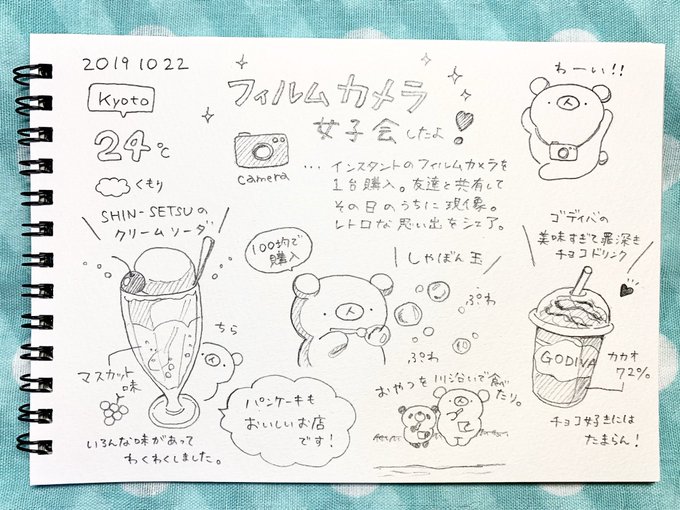 2019 10 22
Kyoto
24℃
くもり
フィルムカメラ
女子会したよ!
camera
... インスタントのフィルムカメラを
1台購入。友達と共有して
その日のうちに現像。
レトロな思い出をシェア。
わーい!!
SHIN-SETSUの
クリームソーダ
ちら
マスカット
味
いろんな味があって
わくわくしました。
100均で
購入
しゃぼん玉
ぷわ
ぷわ
パンケーキも
おいしいお店
です!
おやつを川沿いで食べ
たり。
ゴディバの
美味すぎて罪深き
チョコドリンク
GODIVA
カカオ
72%
チョコ好きには
たまらん!